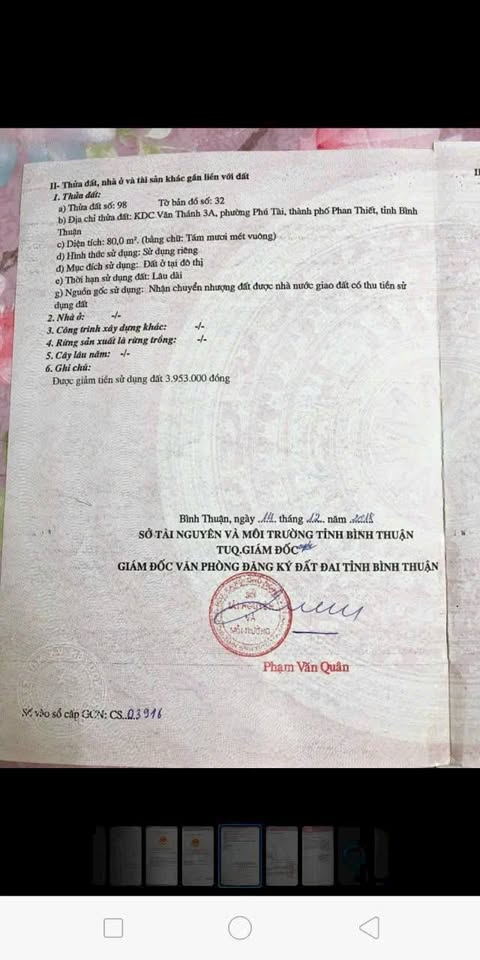 II- Thửa đất, nhà ở và tài sản khác gắn liền với đất
1. Thửa đất:
a) Thửa đất số: 98 Tờ bản đồ số: 32
b) Địa chỉ thửa đất: KDC Văn Thánh 3A, phường Phú Tài, thành phố Phan Thiết, tỉnh Bình
Thuận
c) Diện tích: 80,0 m². (bằng chữ: Tám mươi mét vuông)
d) Hình thức sử dụng: Sử dụng riêng
đ) Mục đích sử dụng: Đất ở tại đô thị
e) Thời hạn sử dụng đất: Lâu dài
g) Nguồn gốc sử dụng: Nhận chuyển nhượng đất được nhà nước giao đất có thu tiền sử
dụng đất
2. Nhà ở: -/-
3. Công trình xây dựng khác: -/-
4. Rừng sản xuất là rừng trồng: -/-
5. Cây lâu năm: -/-
6. Ghi chú:
Được giảm tiền sử dụng đất 3.953.000 đồng
Bình Thuận, ngày 14 tháng 12 năm 2018
SỞ TÀI NGUYÊN VÀ MÔI TRƯỜNG TỈNH BÌNH THUẬN
TUQ.GIÁM ĐỐC
GIÁM ĐỐC VĂN PHÒNG ĐĂNG KÝ ĐẤT ĐAI TỈNH BÌNH THUẬN
SỞ
TÀI NGUYÊN
VÀ
MÔI TRƯỜNG
Phạm Văn Quân
Số vào sổ cấp GCN: CS 03916